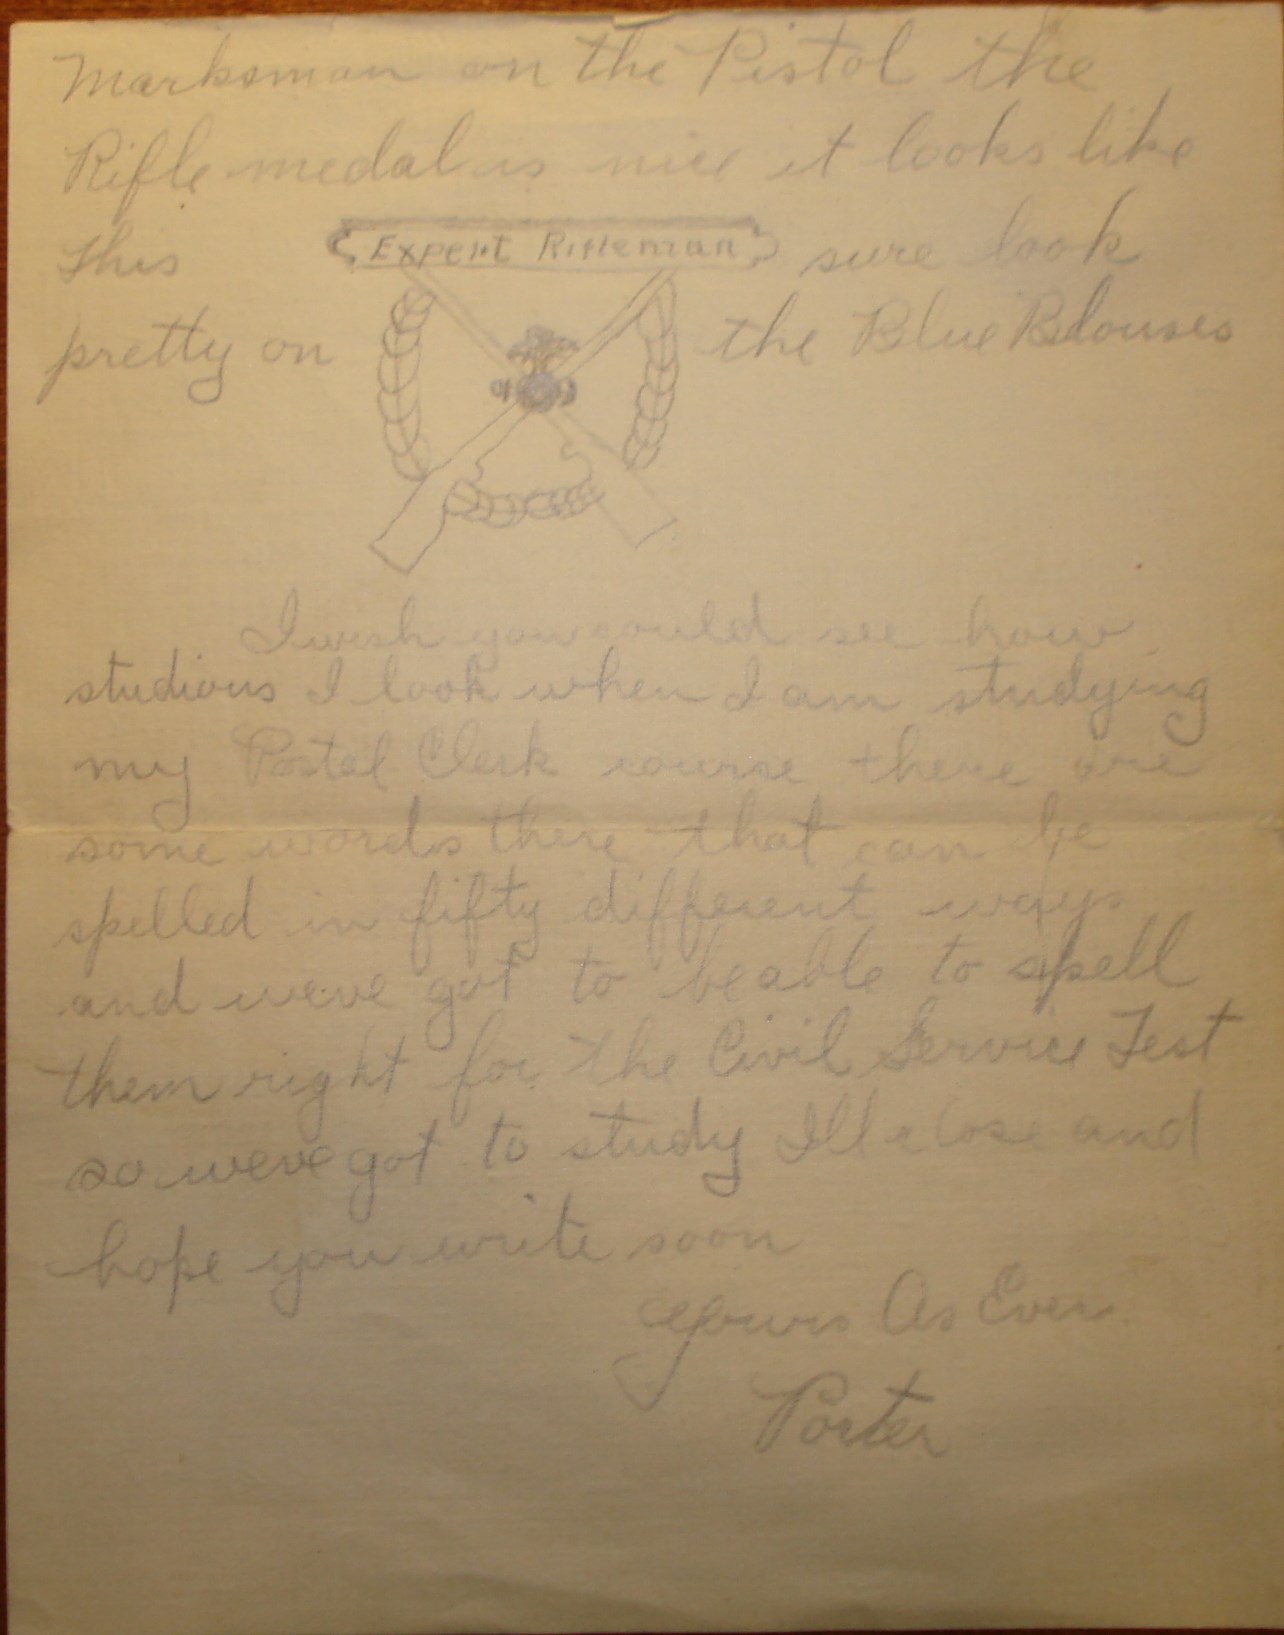 Marksman on the Pistol the
Rifle medal is nice it looks like
this Expert Rifleman sure look
pretty on the Blue Blouses
I wish you could see how
studious I look when I am studying
my Postal Clerk course there are
some words there that can be
spelled in fifty different ways
and weve got to be able to spell
them right for the Civil Service Test
so weve got to study Ill close and
hope you write soon
Yours As Ever
Porter